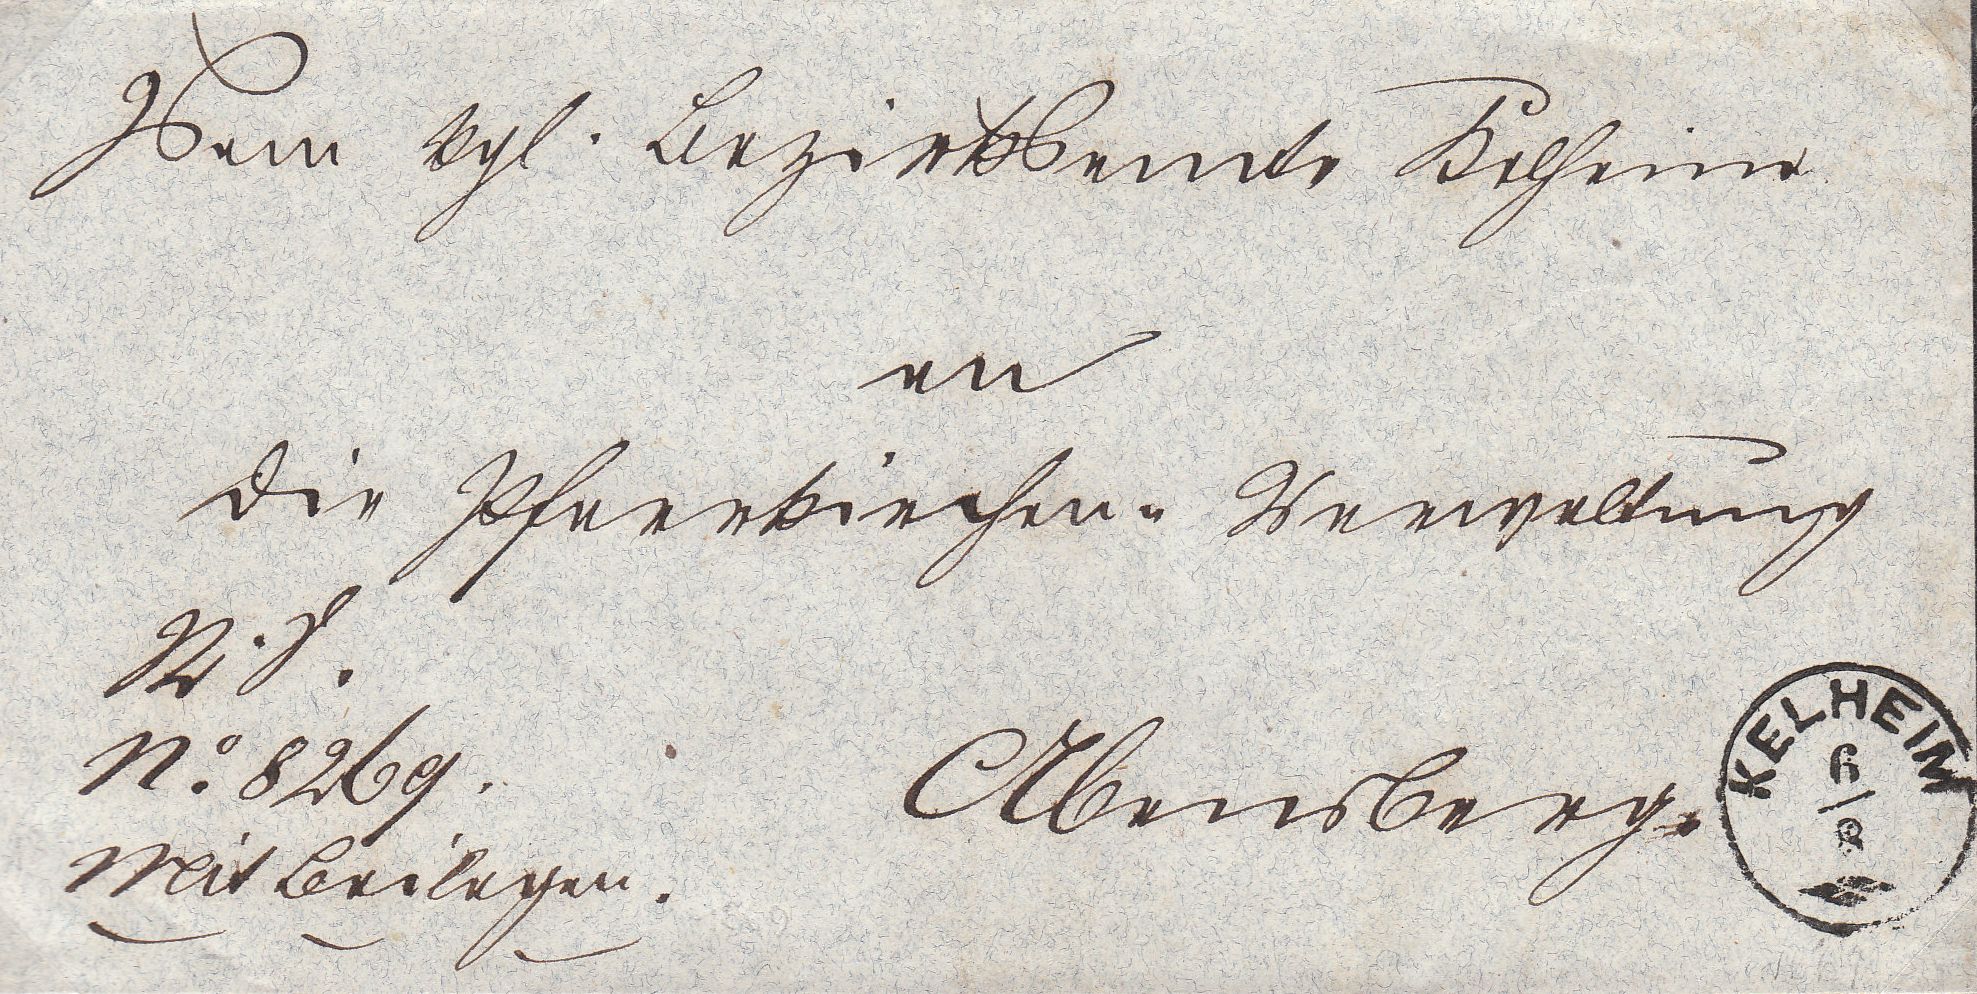 Vom kgl. Bezirksamte Kelheim
an
die Pfarrkirchen- Verwaltung
R. S.
No. 8269.
Abensberg.
Mit Beilagen.
KELHEIM
6/8